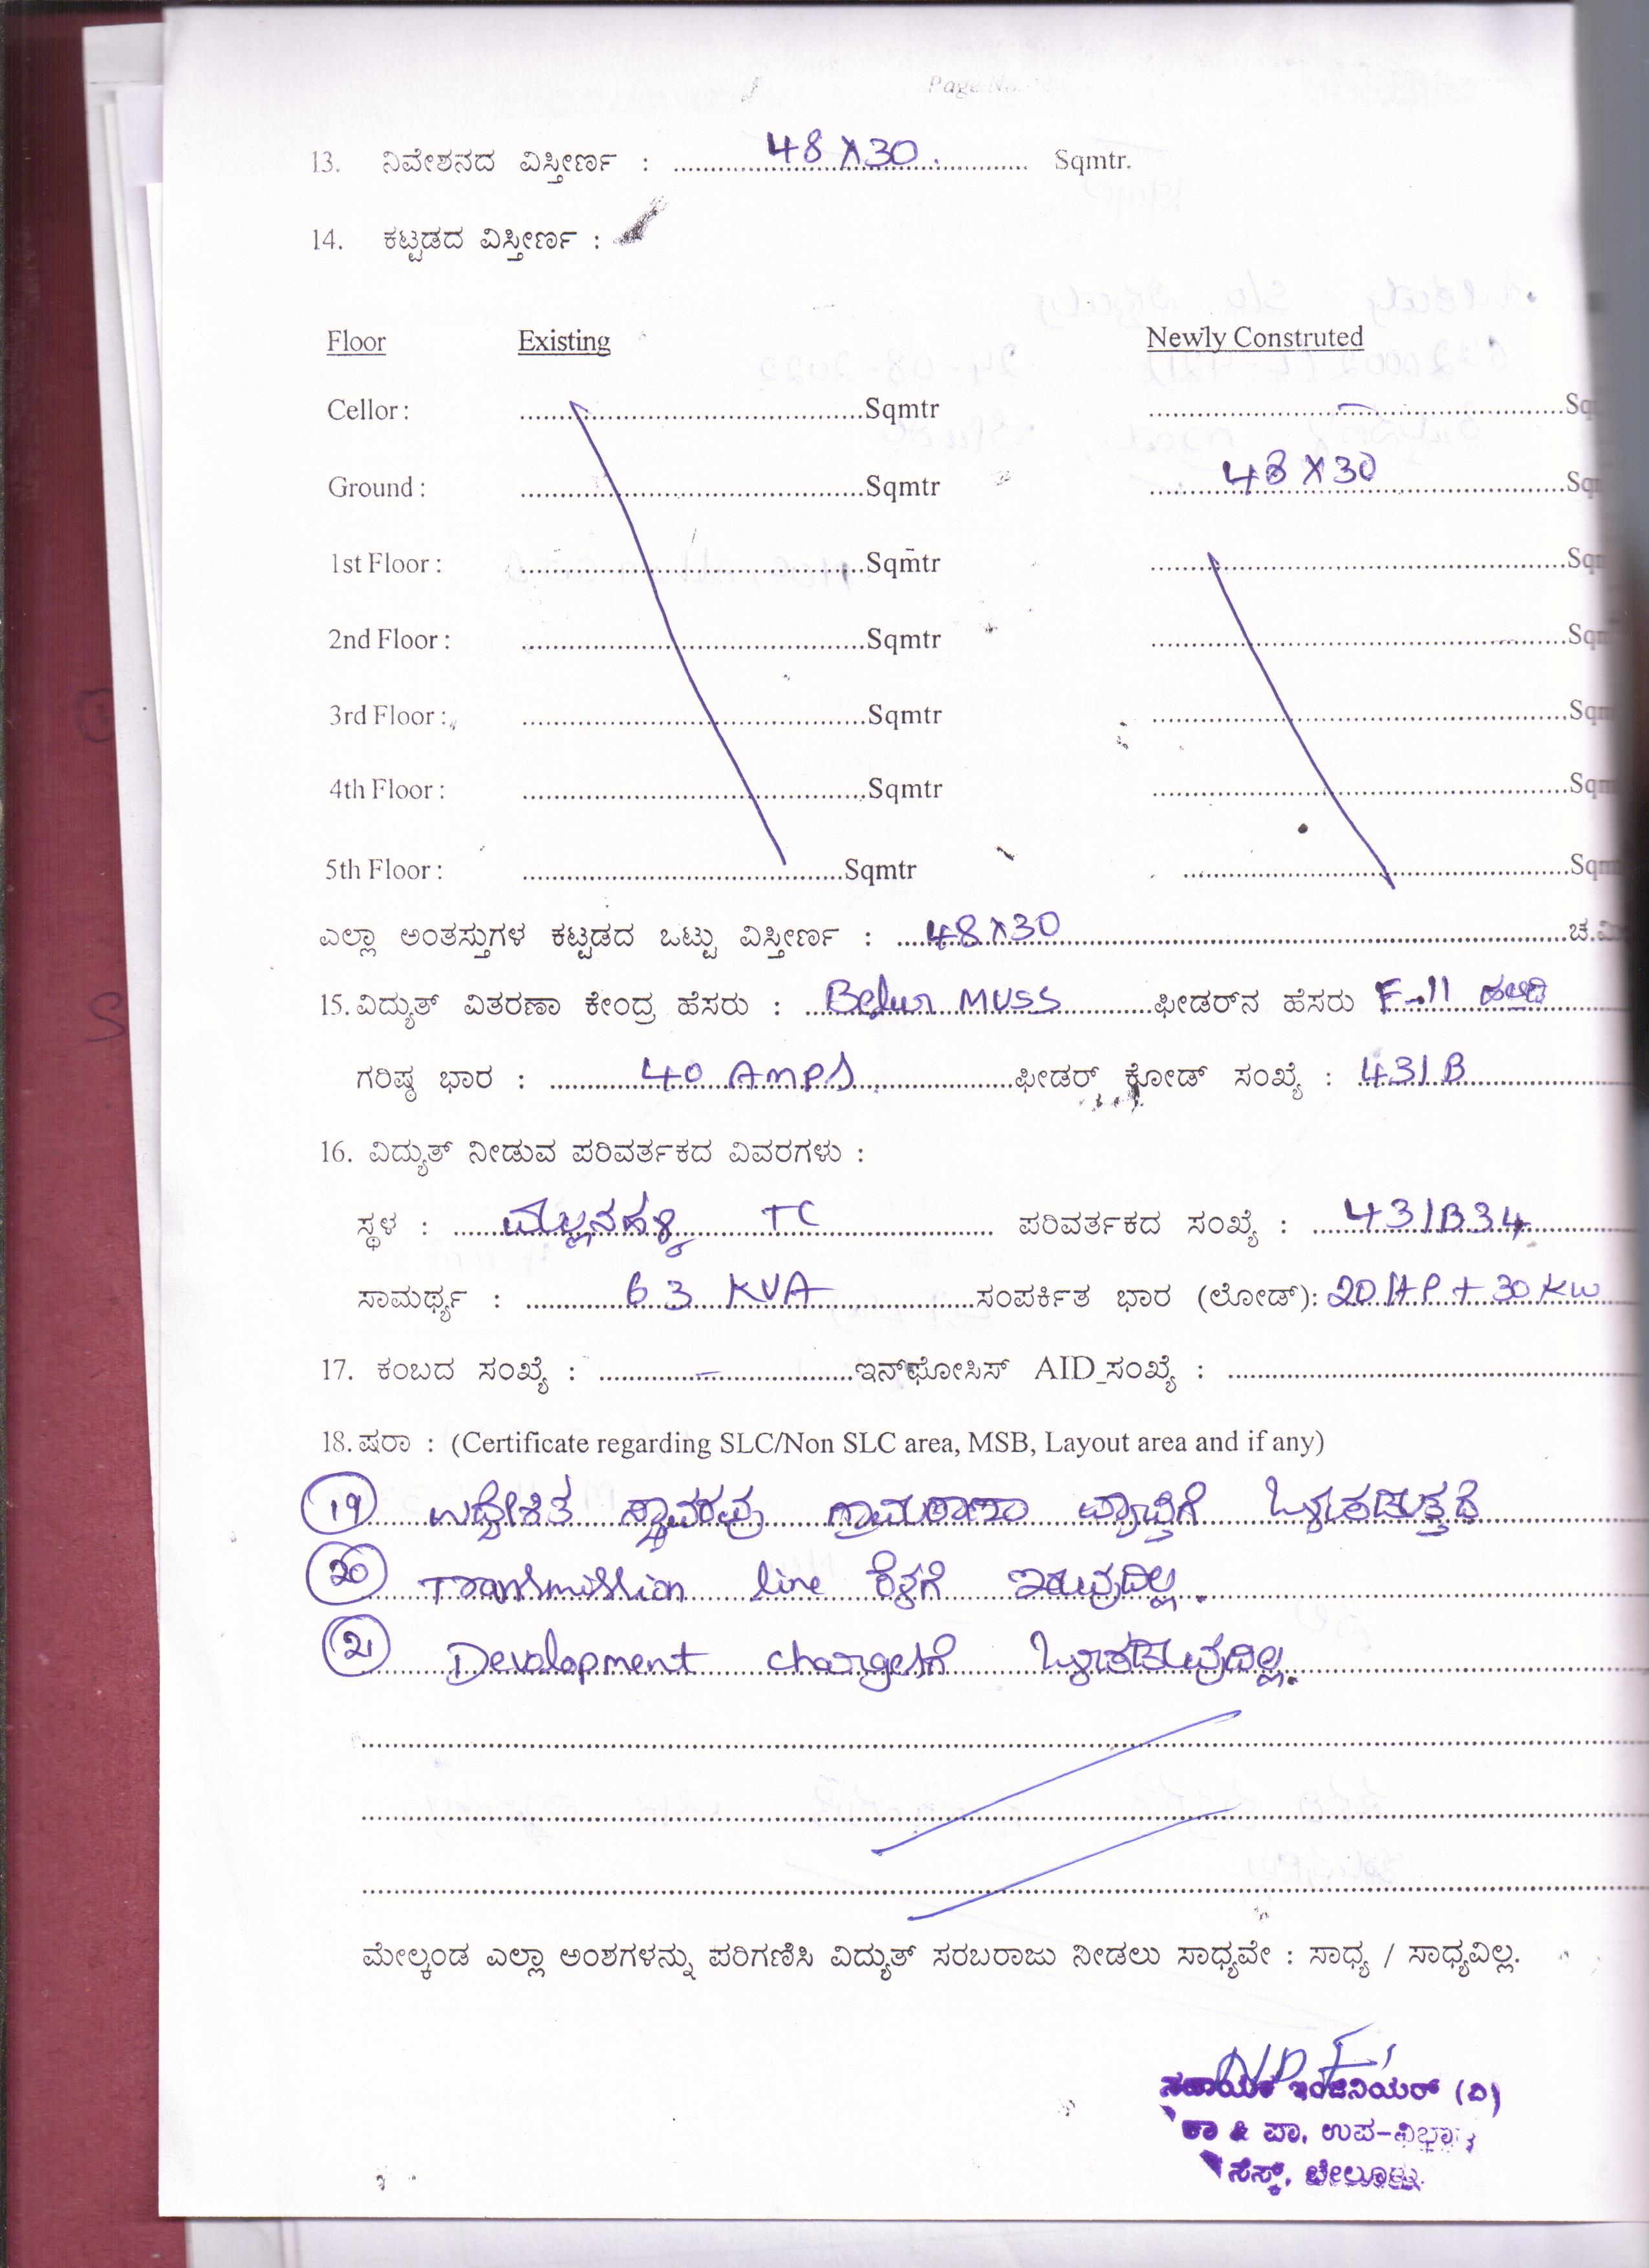 Page No.
13. ನಿವೇಶನದ ವಿಸ್ತೀರ್ಣ : 48 X 30. Sqmtr.
14. ಕಟ್ಟಡದ ವಿಸ್ತೀರ್ಣ :
Floor Existing Newly Construted
Cellor : Sqmtr – Sq
Ground : Sqmtr 48 X 30 Sq
1st Floor : Sqmtr Sq
2nd Floor : Sqmtr Sq
3rd Floor : Sqmtr Sq
4th Floor : Sqmtr Sq
5th Floor : Sqmtr Sq
ಎಲ್ಲಾ ಅಂತಸ್ತುಗಳ ಕಟ್ಟಡದ ಒಟ್ಟು ವಿಸ್ತೀರ್ಣ : 48 X 30 ಚ.
15. ವಿದ್ಯುತ್ ವಿತರಣಾ ಕೇಂದ್ರ ಹೆಸರು : Belur MUSS ಫೀಡರ್‌ನ ಹೆಸರು F-11
ಗರಿಷ್ಠ ಭಾರ : 40 Amps ಫೀಡರ್ ಕೋಡ್ ಸಂಖ್ಯೆ : 431B
16. ವಿದ್ಯುತ್ ನೀಡುವ ಪರಿವರ್ತಕದ ವಿವರಗಳು :
ಸ್ಥಳ : ಮಲ್ಲನಹಳ್ಳಿ TC ಪರಿವರ್ತಕದ ಸಂಖ್ಯೆ : 431B34
ಸಾಮರ್ಥ್ಯ : 63 KVA ಸಂಪರ್ಕಿತ ಭಾರ (ಲೋಡ್): 20 HP + 30 KW
17. ಕಂಬದ ಸಂಖ್ಯೆ : – ಇನ್‌ಫೋಸಿಸ್ AID ಸಂಖ್ಯೆ :
18. ಷರಾ : (Certificate regarding SLC/Non SLC area, MSB, Layout area and if any)
19 ಉದ್ದೇಶಿತ ಸ್ಥಾವರವು ಗ್ರಾಮಠಾಣಾ ವ್ಯಾಪ್ತಿಗೆ ಒಳಪಡುತ್ತದೆ
20 Transmission line ಕೆಳಗೆ ಇರುವುದಿಲ್ಲ.
21 Development chargesಗೆ ಒಳಪಡುವುದಿಲ್ಲ.
ಮೇಲ್ಕಂಡ ಎಲ್ಲಾ ಅಂಶಗಳನ್ನು ಪರಿಗಣಿಸಿ ವಿದ್ಯುತ್ ಸರಬರಾಜು ನೀಡಲು ಸಾಧ್ಯವೇ : ಸಾಧ್ಯ / ಸಾಧ್ಯವಿಲ್ಲ.
ಸಹಾಯಕ ಇಂಜಿನಿಯರ್ (ವಿ)
ಕಾ & ಪಾ. ಉಪ-ವಿಭಾಗ,
ಸೆಸ್ಕ್, ಬೇಲೂರು.